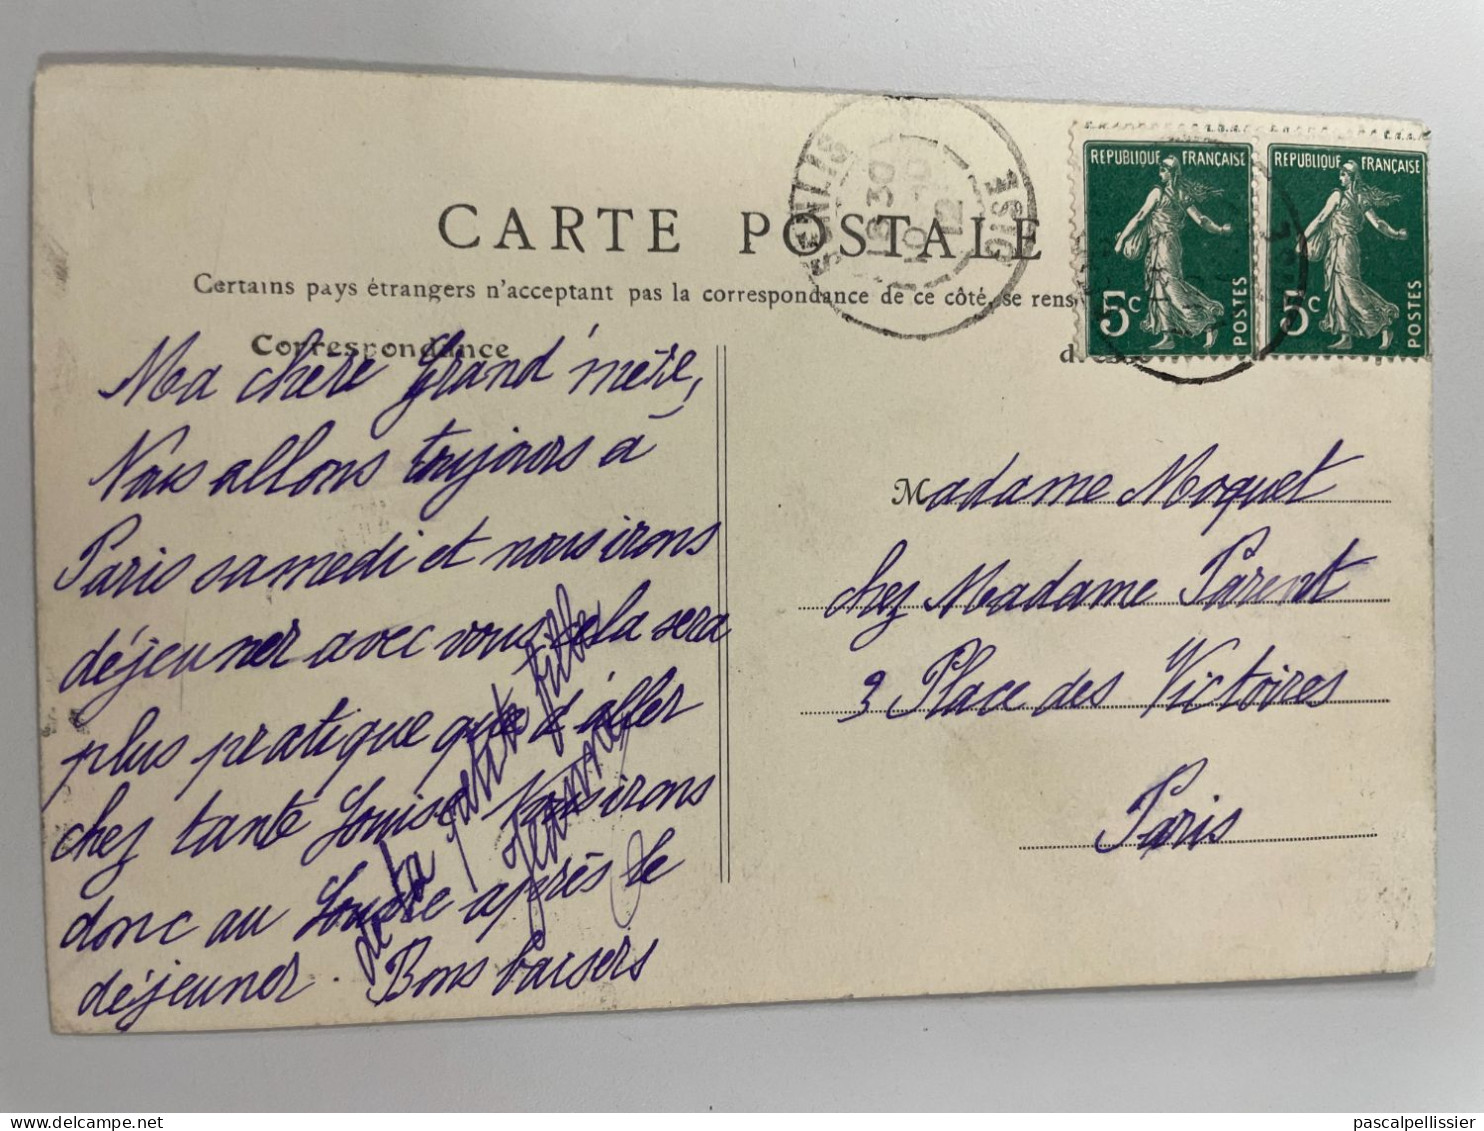 CARTE POSTALE
Certains pays étrangers n'acceptant pas la correspondance de ce côté, se rens
Correspondance
Ma chère Grand'mère,
Nous allons toujours à
Paris samedi et nous irons
déjeuner avec vous cela sera
plus pratique que d'aller
chez tante Louise Nous irons
donc au Louvre après le
déjeuner. Bons baisers
de ta petite fille
Jeanne
SENLIS
8 30
9 -10
12
OISE
REPUBLIQUE FRANÇAISE
5c
POSTES
REPUBLIQUE FRANÇAISE
5c
POSTES
Madame Moquet
chez Madame Parent
3 Place des Victoires
Paris
pascalpellissier